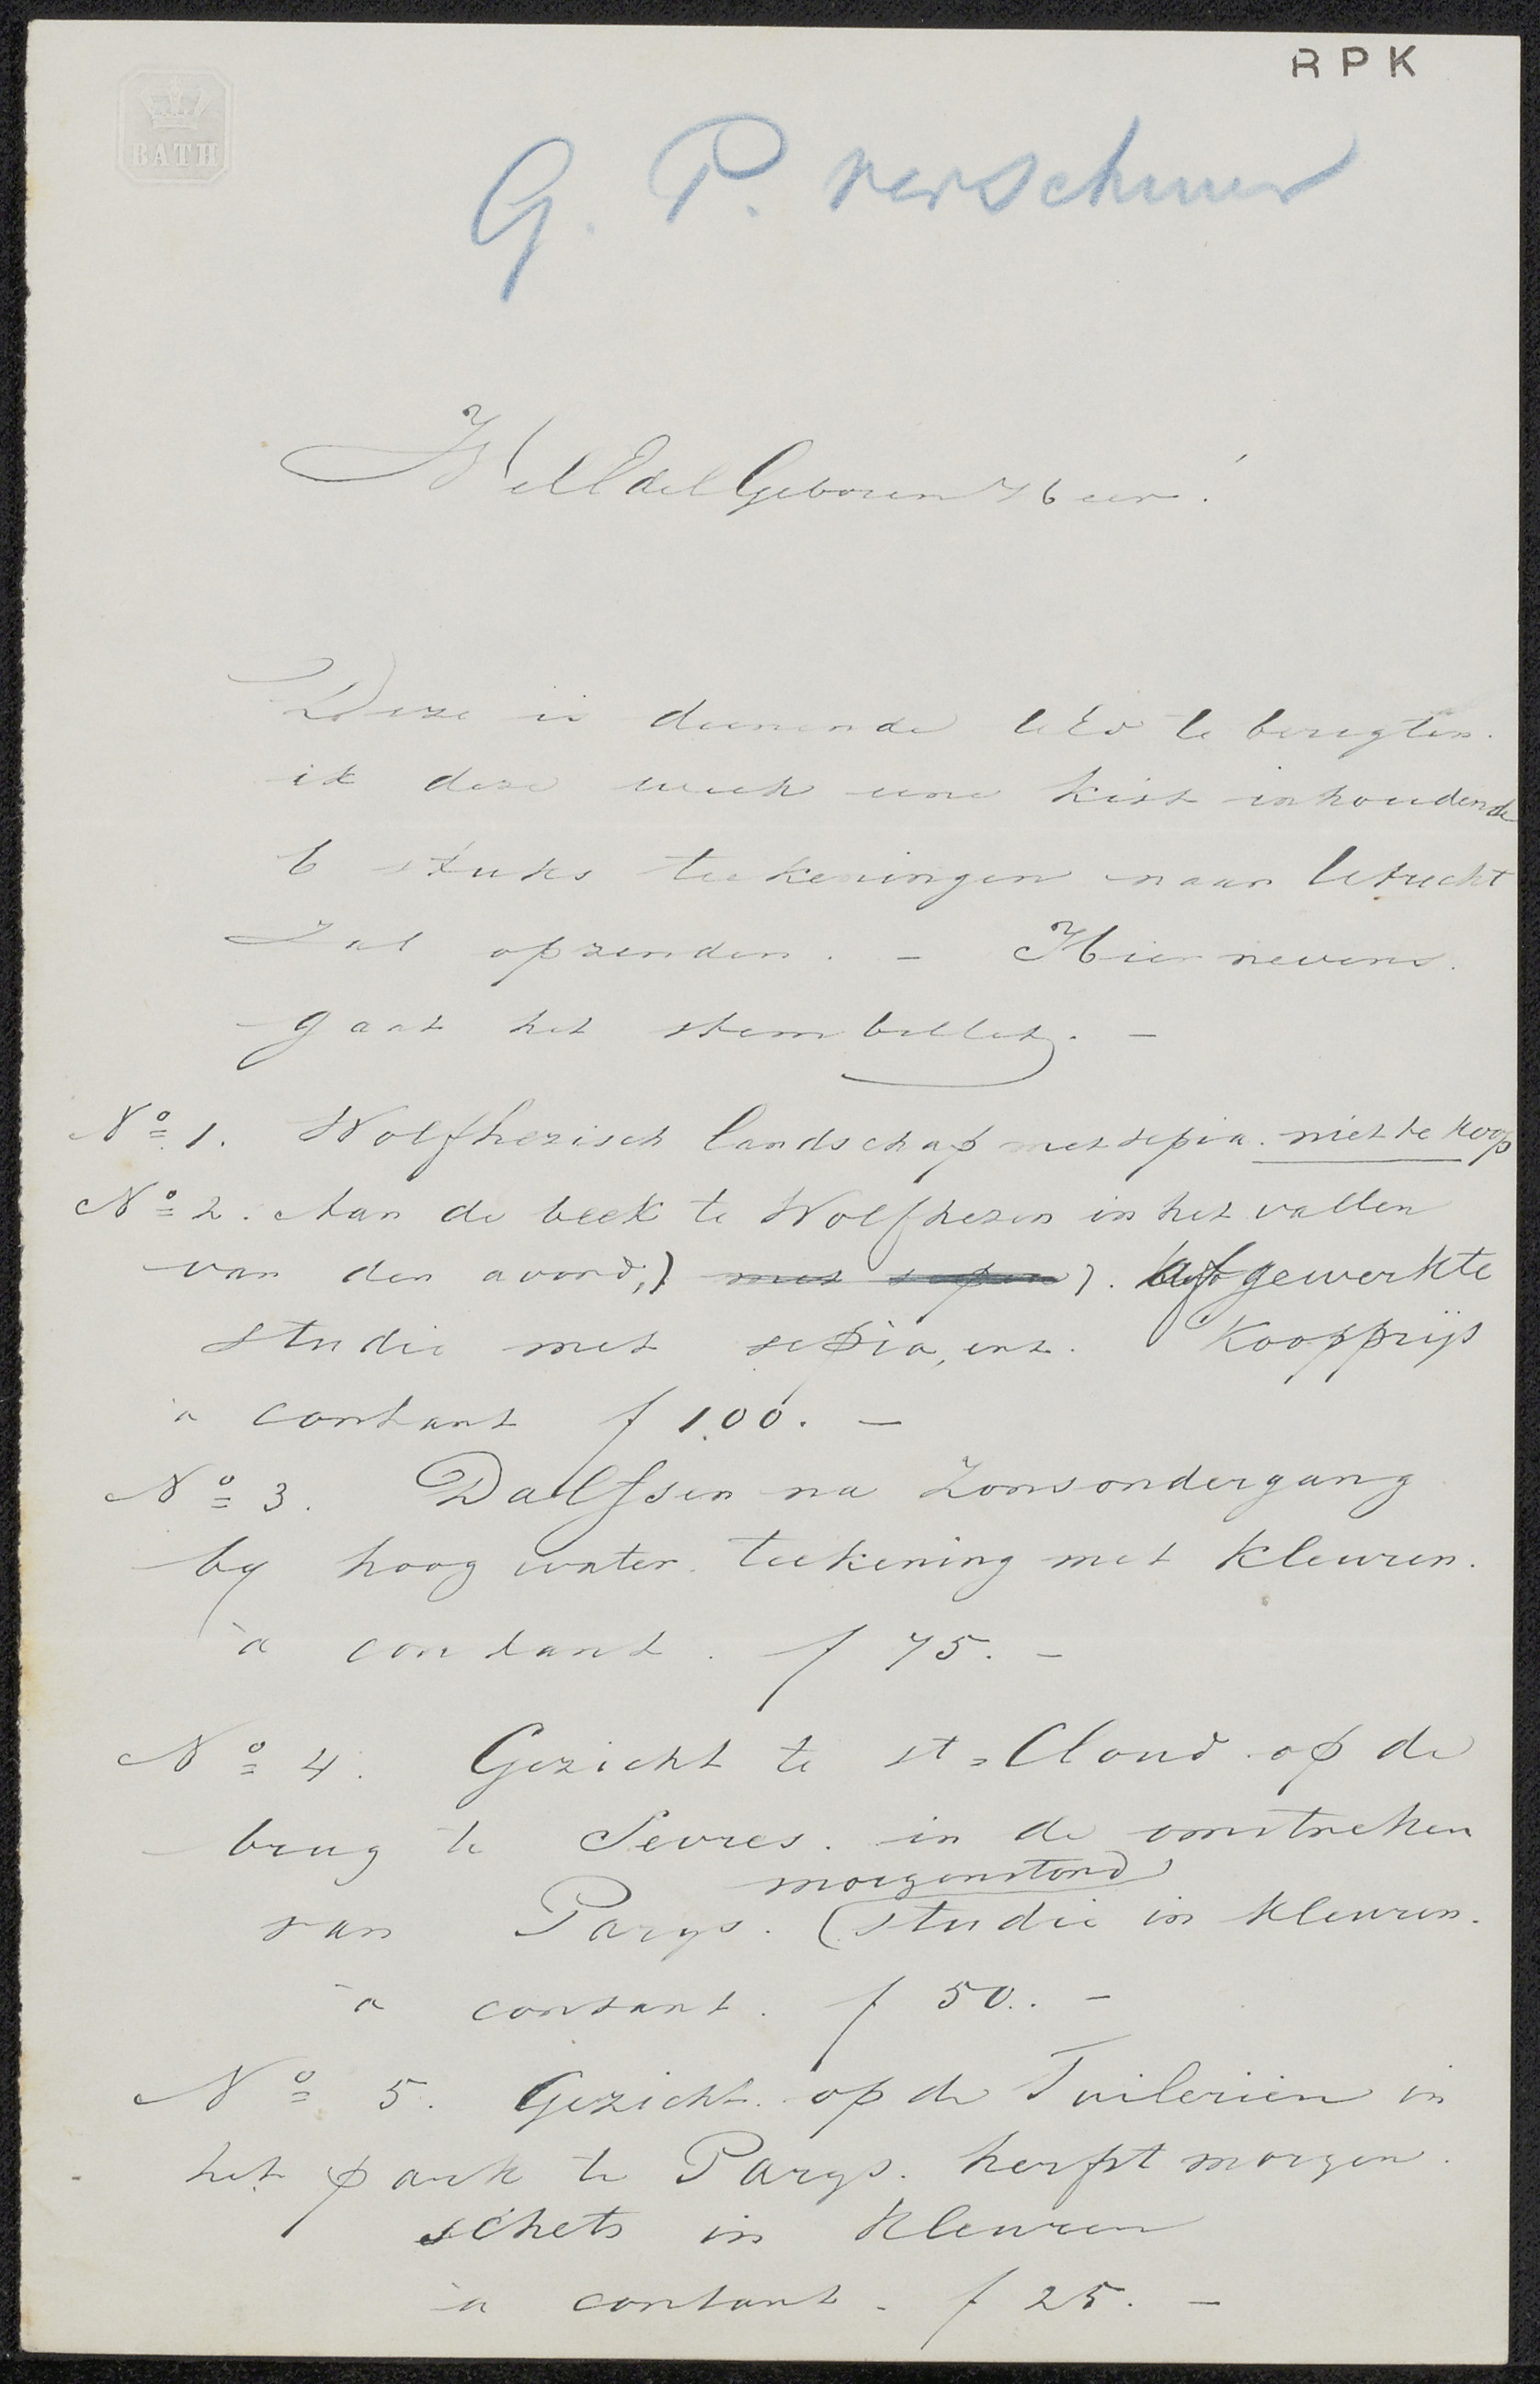 RPK
BATH
G. P. verschuur
WelEdelGeboren Heer!
Deze is dienende UEd te berigten.
ik deze week eene kist inhoudende
6 stuks teekeningen naar Utrecht
Zal opzenden. – Hier nevens.
gaat het stembillet. –
No 1. Wolfhezisch landschap met sepia. niet te koop
No 2. Aan de beek te Wolfhezen in het vallen
van den avond,) met sepia). afgewerkte
studie met sepia, enz. Koopprijs
à contant f 100. –
No 3. Dalfsen na Zonsondergang
by hoog water. teekening met kleuren.
à contant. f 75. –
No 4. Gezicht te st= Cloud op de
brug te Sevres. in de omstreken
morgenstond
van Parys. (studie in kleuren.
à contant. f 50.. –
No 5. Gezicht op de Tuilerien in
het park te Parys. herfst morgen.
schets in kleuren
à contant. f 25. –